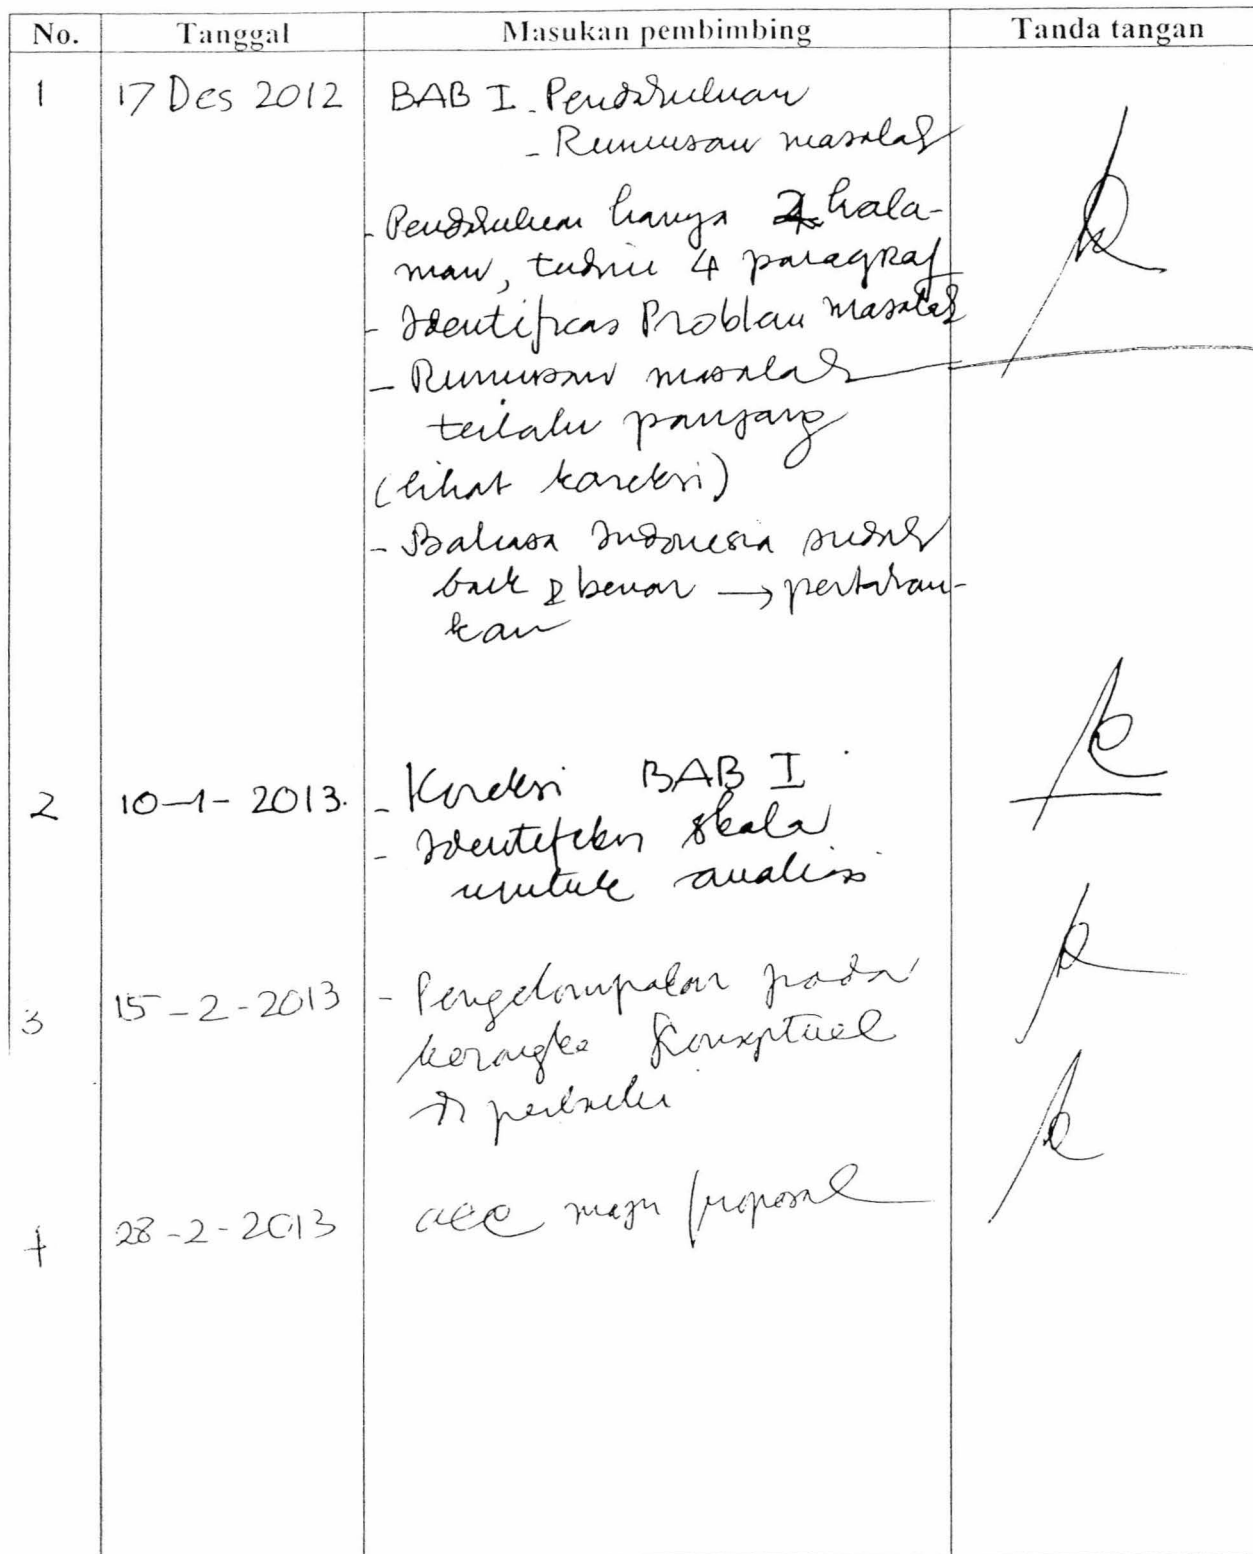 No. Tanggal Masukan pembimbing Tanda tangan
1 17 Des 2012 BAB I - Pendahuluan
- Rumusan masalah
- Pendahuluan hanya 2 hala-
man, 4 paragraf
- Identifikas Problem masalah
- Rumusan masalah
terlalu panjang
(lihat koreksi)
- Bahasa Indonesia sudah
baik & benar → pertahan-
kan
2 10-1-2013. - Koreksi BAB I
- Identifikasi skala
untuk analisis
3 15-2-2013 - Pengelompokan pada
kerangka konseptual
di perbaiki
4 28-2-2013 acc maju proposal